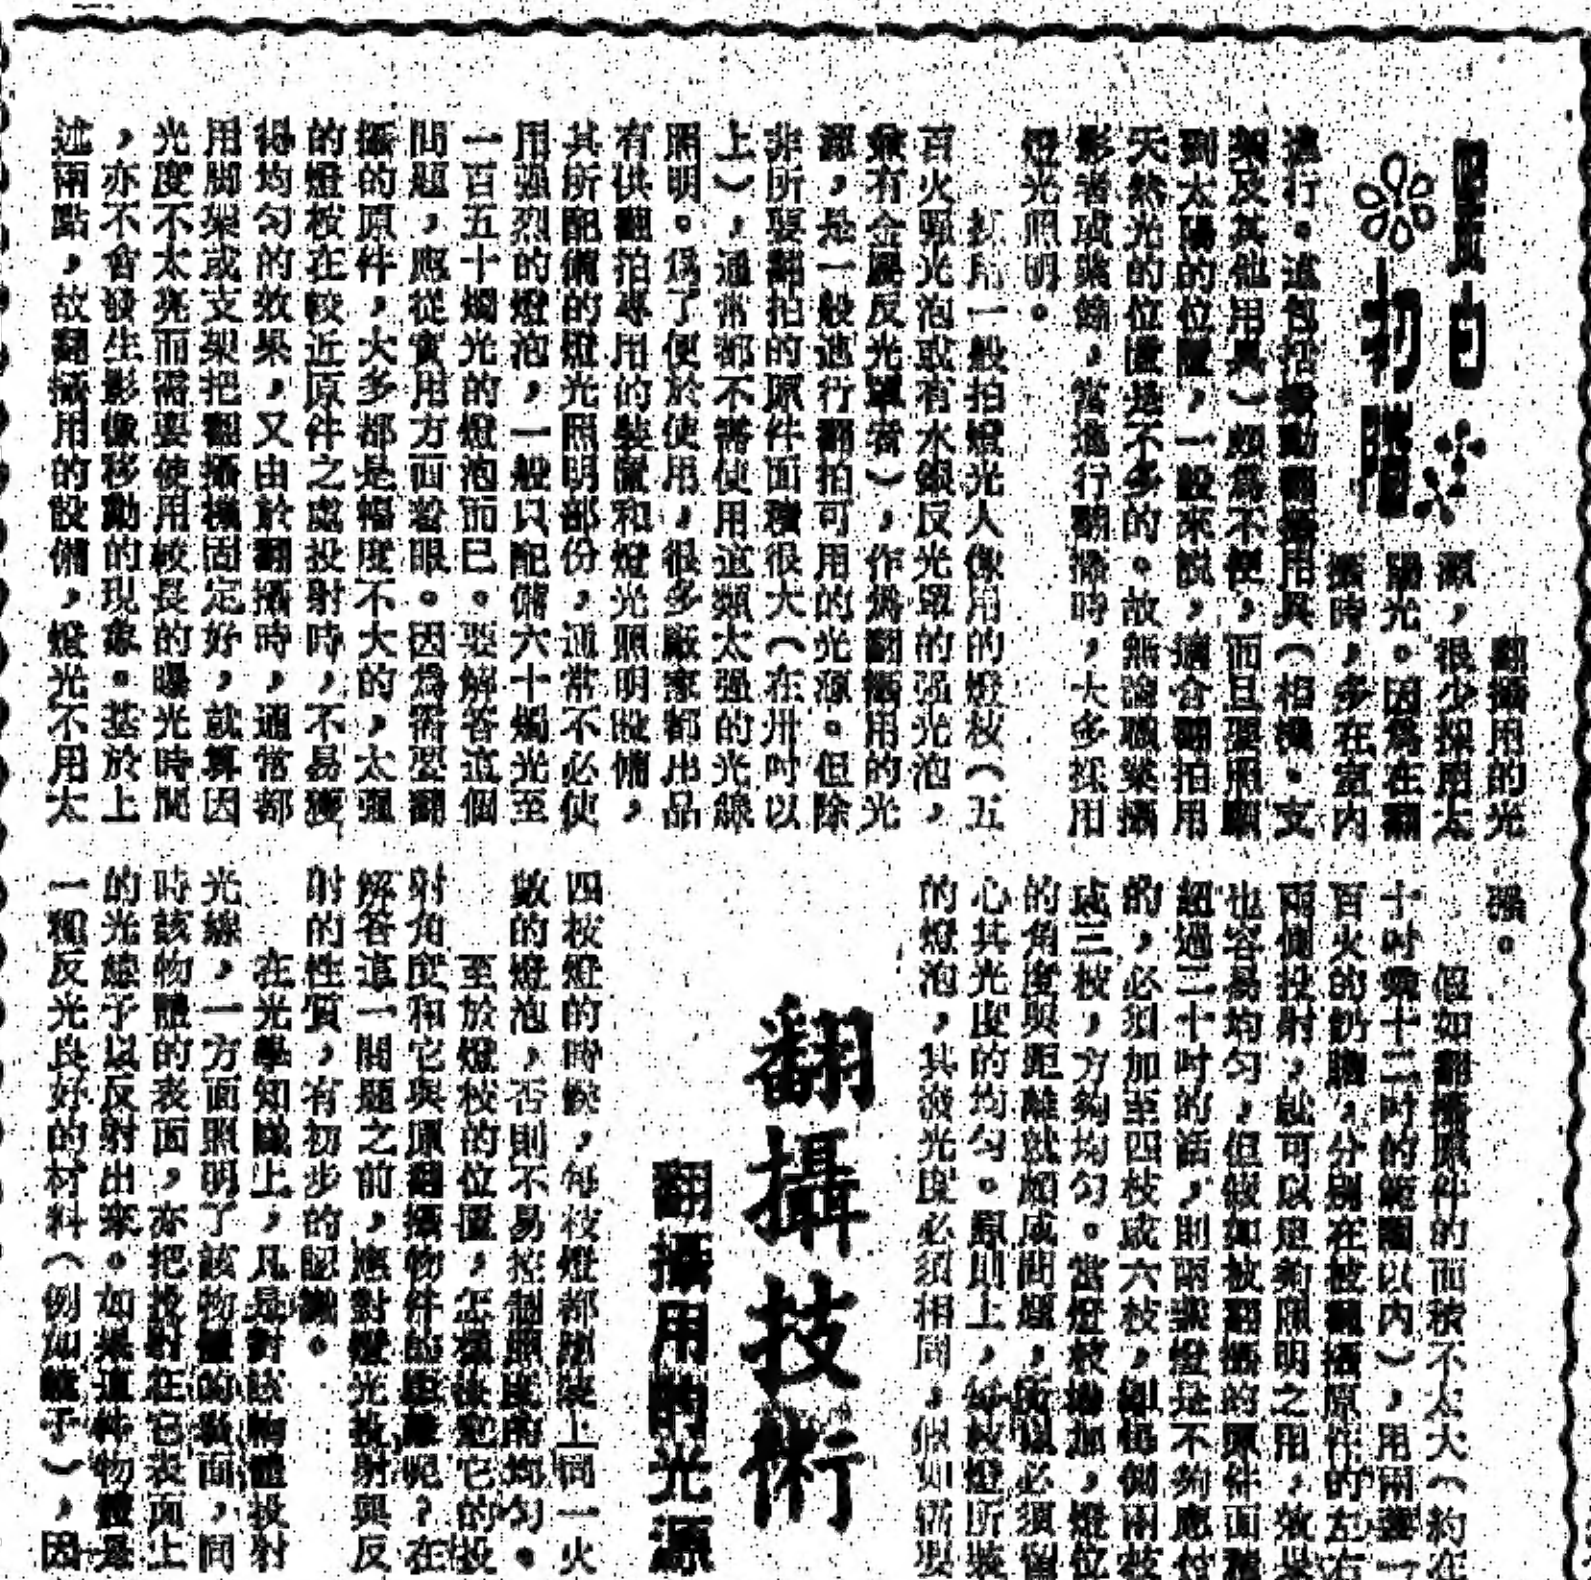 黑白
初階
翻攝技術
翻攝用的光源
翻攝用的光
源,很少採用太
陽光。因爲在翻
攝時,多在室內
進行。這包括搬動翻攝用具(相機、支
架及其他用具)頗爲不便,而且要兼顧
到太陽的位置,一般來說,適合翻拍用
天然光的位置是不多的。故無論職業攝
影者或業餘,當進行翻攝時,大多採用
燈光照明。
採用一般拍燈光人像用的燈枝(五
百火强光泡或有水銀反光罩的强光泡,
兼有金屬反光罩者),作爲翻攝用的光
源,是一般進行翻拍可用的光源。但除
非所要翻拍的原件面積很大(在卅吋以
上),通常都不需使用這類太强的光線
照明。爲了便於使用,很多廠家都出品
有供翻拍專用的裝置和燈光照明設備,
其所配備的燈光照明部份,通常不必使
用强烈的燈泡,一般只配備六十燭光至
一百五十燭光的燈泡而已。要解答這個
問題,應從實用方面着眼。因爲需要翻
攝的原件,大多都是幅度不大的,太强
的燈枝在較近原件之處投射時,不易獲
得均勻的效果,又由於翻攝時,通常都
用脚架或支架把翻攝機固定好,就算因
光度不太亮而需要使用較長的曝光時間
,亦不會發生影像移動的現象。基於上
述兩點,故翻攝用的設備,燈光不用太
强。
假如翻攝原件的面積不太大(約在
十吋乘十二吋的範圍以內),用兩盞一
百火的奶膽,分別在被翻攝原件的左右
兩側投射,就可以足夠照明之用,效果
也容易均勻,但假如被翻攝的原件面積
超過二十吋的話,則兩盞燈是不夠應付
的,必須加至四枝或六枝,即每側兩枝
或三枝,方夠均勻。當燈枝增加,燈位
的角度與距離就頗成問題,所以必須留
心其光度的均勻。原則上,每枝燈所裝
的燈泡,其發光度必須相同,假如需要
四枝燈的時候,每枝燈都應裝上同一火
數的燈泡,否則不易控制照度的均勻。
至於燈枝的位置,怎樣決定它的投
射角度和它與原翻攝物件的距離呢?在
解答這一問題之前,應對燈光投射與反
射的性質,有初步的認識。
在光學知識上,凡是對該物體投射
光線,一方面照明了該物體的表面,同
時該物體的表面,亦把投射在它表面上
的光線予以反射出來。如果這件物體是
一種反光良好的材料(例如鏡子),因